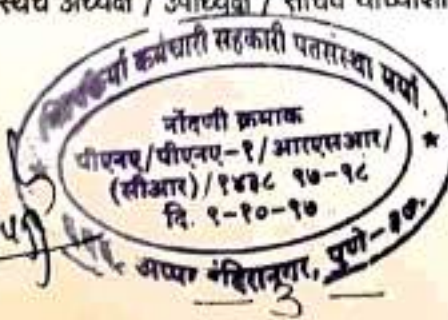 अध्यक्ष / उपाध्यक्ष / सचिव
कर्मचारी सहकारी पतसंस्था मर्या.
नोंदणी क्रमांक
पीएनए/पीएनए-१/आरएसआर/
(सीआर)/१४३८ १७-१८
दि. ९-१०-१७
अप्पर इंदिरानगर, पुणे-३७.
3